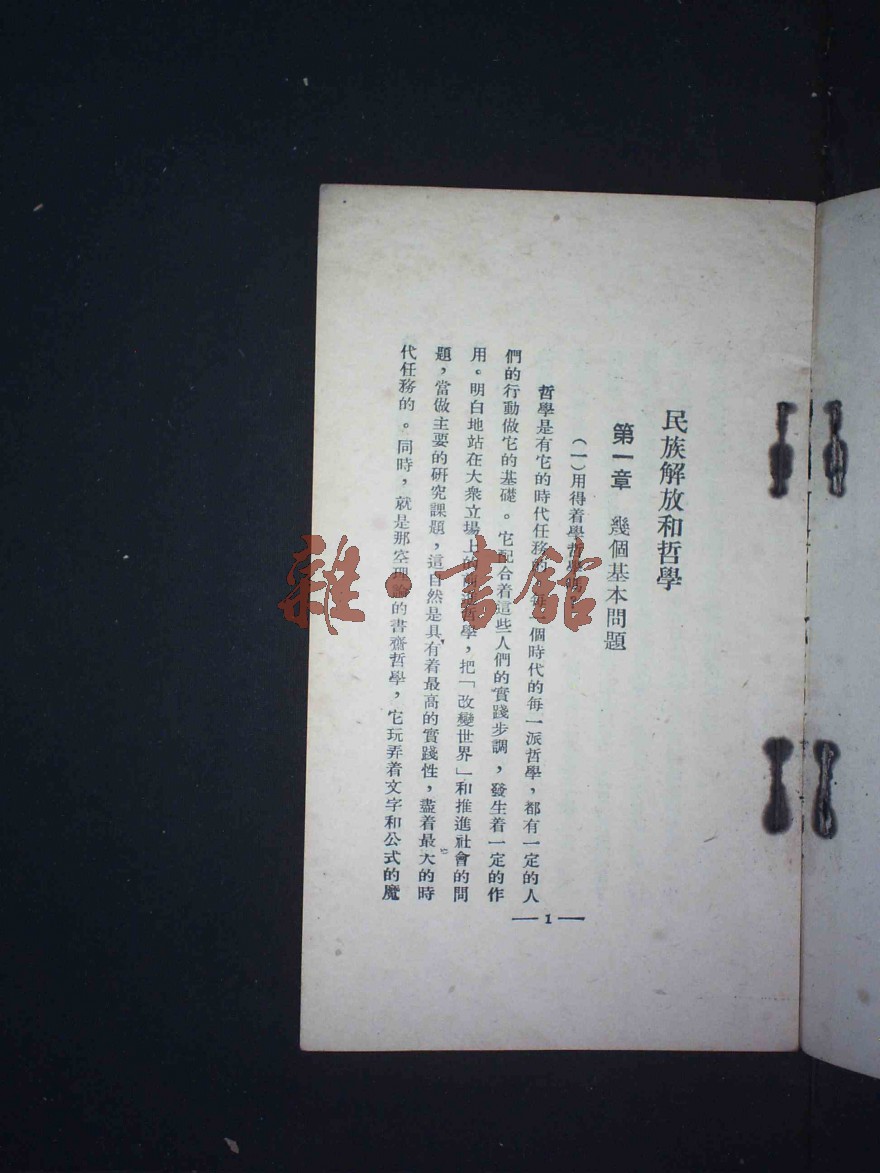 民族解放和哲學
第一章 幾個基本問題
(一)用得着學哲學嗎?
哲學是有它的時代任務的,每一個時代的每一派哲學,都有一定的人
們的行動做它的基礎。它配合着這些人們的實踐步調,發生着一定的作
用。明白地站在大衆立場上的哲學,把「改變世界」和推進社會的問
題,當做主要的研究課題,這自然是具有着最高的實踐性,盡着最大的時
代任務的。同時,就是那空理論的書齋哲學,它玩弄着文字和公式的魔
— 1 —
雜·書館